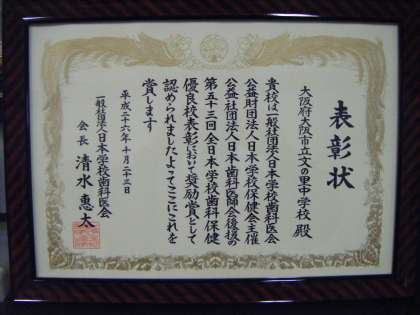 表彰状
大阪府大阪市立文の里中学校 殿
貴校は一般社団法人日本学校歯科医会
公益財団法人日本学校保健会主催
公益社団法人日本歯科医師会後援の
第五十三回全日本学校歯科保健
優良校表彰において奨励賞として
認められましたよってここにこれを
賞します
平成二十六年十月二十三日
一般社団法人日本学校歯科医会
会長 清水惠太